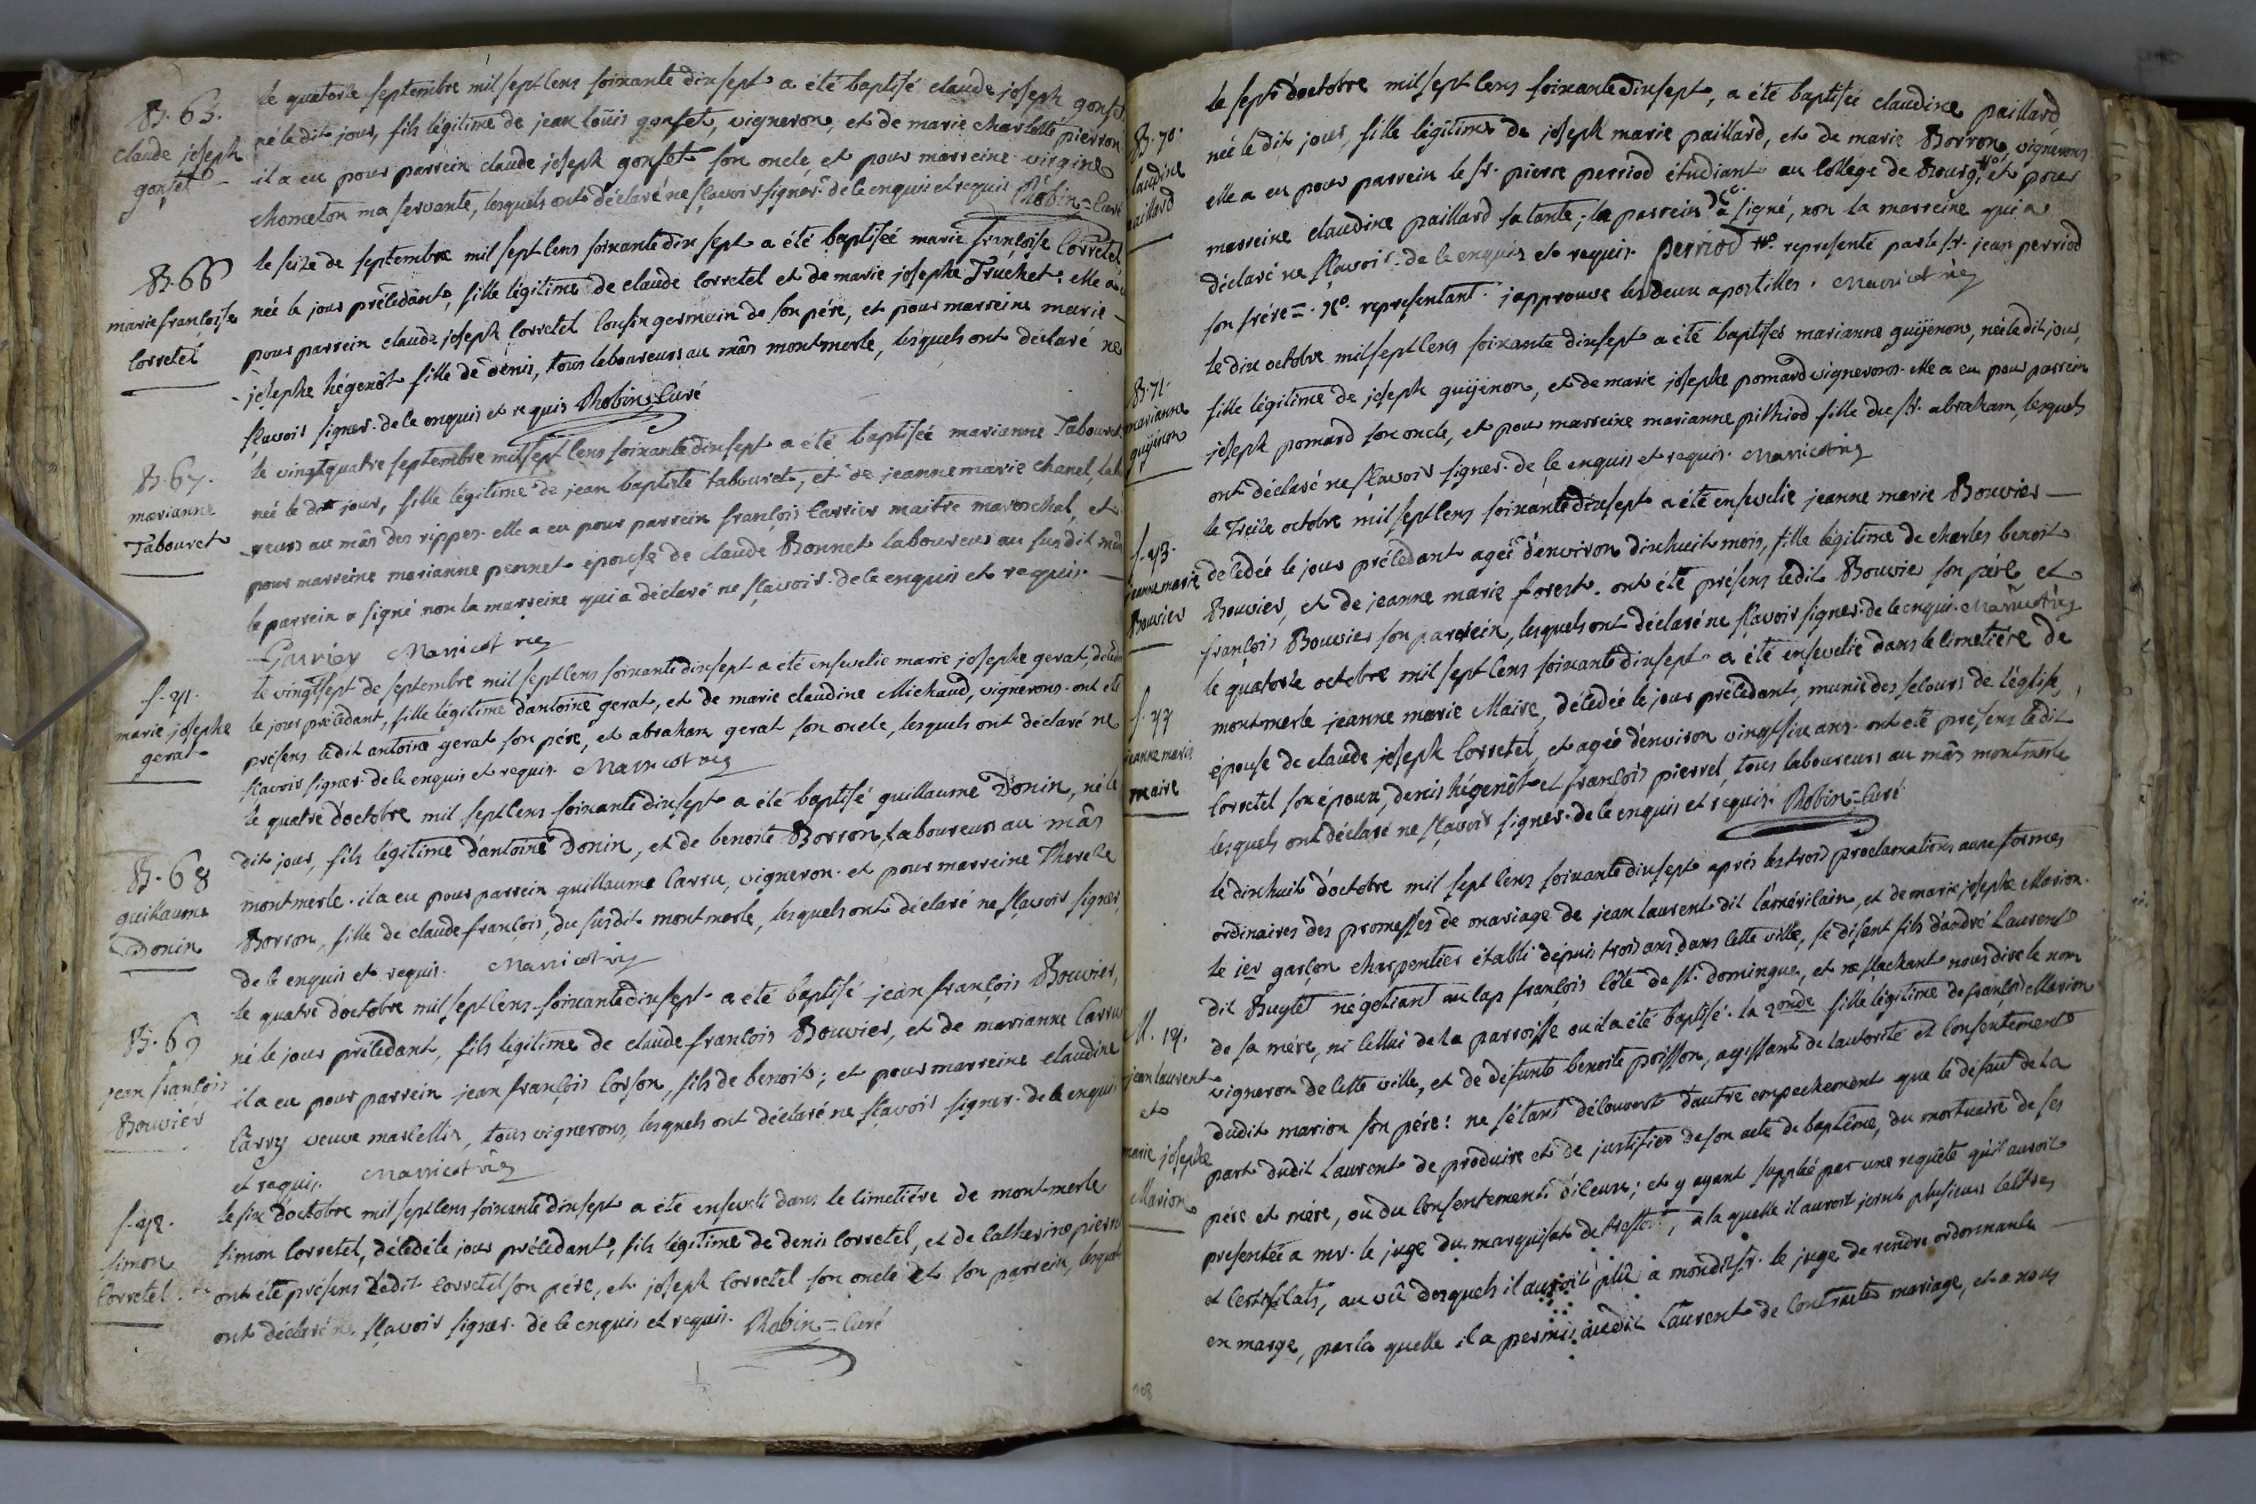 B. 65.
claude joseph
gonset
le quatorze septembre mil sept cens soixante dix sept a été baptisé claude joseph gonset
né le dit jour, fils légitime de jean loüis gonset, vigneron, et de marie charlotte pierron
il a eu pour parrein claude joseph gonset son oncle, et pour marreine virgine
chometon ma servante, lesquels ont déclaré ne sçavoir signer. de ce enquis et requis Robin = Curé
B. 66
marie françoise
corretel
le seize de septembre mil sept cens soixante dix sept a été baptisée marie françoise corretel
née le jour précédant, fille légitime de claude corretel et de marie josephe Truchet. elle a eu
pour parrein claude joseph corretel cousin germain de son pére, et pour marreine marie
josephe hégenot fille de denis, tous laboureurs au mân montmerle, lesquels ont déclaré ne
sçavoir signer. de ce enquis et requis Robin = Curé
B. 67.
marianne
Tabouret
le vingtquatre septembre mil sept cens soixante dix sept a été baptisée marianne Tabouret
née le dit jour, fille légitime de jean baptiste tabouret, et de jeanne marie chanel, labou
reurs au mân des rippes. elle a eu pour parrein françois Carrier maitre marechal, et
pour marreine marianne pennet épouse de claude Bonnet laboureur au susdit mân
le parrein a signé non la marreine qui a déclaré ne sçavoir. de ce enquis et requis.
Carrier Manicot vic
S. 41.
marie josephe
gerat
le vingtsept de septembre mil sept cens soixante dix sept a été ensevelie marie josephe gerat, décédée
le jour précédant, fille légitime d'antoine gerat, et de marie claudine Michaud, vignerons. ont été
présens ledit antoine gerat son pére, et abraham gerat son oncle, lesquels ont déclaré ne
sçavoir signer. de ce enquis et requis. Manicot vic
B. 68
guillaume
Donin
le quatre d'octobre mil sept cens soixante dix sept a été baptisé guillaume Donin, né le
dit jour, fils légitime d'antoine Donin, et de benoite Borron, laboureurs au mân
montmerle. il a eu pour parrein guillaume Carru, vigneron. et pour marreine Thereze
Borron, fille de claude françois, du susdit montmerle, lesquels ont déclaré ne sçavoir signer,
de ce enquis et requis. Manicot vic
B. 69
jean françois
Bouvier
le quatre d'octobre mil sept cens soixante dix sept a été baptisé jean françois Bouvier,
né le jour précédant, fils légitime de claude françois Bouvier, et de marianne Carru
il a eu pour parrein jean françois Corson, fils de benoit; et pour marreine claudine
Carry veuve marcellin, tous vignerons, lesquels ont déclaré ne sçavoir signer. de ce enquis
et requis. Manicot vic
S. 42.
simon
Corretel
le six d'octobre mil sept cens soixante dix sept a été enseveli dans le cimetiére de montmerle
simon Corretel, décédé le jour précédant, fils légitime de denis Corretel, et de catherine pierrel
ont été présens ledit Corretel son pére, et joseph Corretel son oncle et son parrein, lesquels
ont déclaré ne sçavoir signer. de ce enquis et requis. Robin = Curé
B. 70.
claudine
paillard
le sept d'octobre mil sept cens soixante dix sept, a été baptisée claudine paillard
née le dit jour, fille légitime de joseph marie paillard, et de marie Borron, vignerons.
elle a eu pour parrein le sr. pierre perriod étudiant au collége de Bourg, et pour
marreine claudine paillard sa tante, le parrein a signé, non la marreine qui a
déclaré ne sçavoir. de ce enquis et requis. perriod No. representé par le sr. jean perriod
son frére =. No. representant. japprouve les deux apostilles. Manicot vic
B. 71.
marianne
guijenon
le dix octobre mil sept cens soixante dix sept a été baptisée marianne guijenon, née le dit jour,
fille légitime de joseph guijenon, et de marie josephe pomard vignerons. elle a eu pour parrein
joseph pomard son oncle, et pour marreine marianne pithiod fille du sr. abraham, lesquels
ont déclaré ne sçavoir signer. de ce enquis et requis. Manicot vic
S. 43.
jeanne marie
Bouvier
le Treize octobre mil sept cens soixante dix sept a été ensevelie jeanne marie Bouvier
décédée le jour précédant agée d'environ dix huit mois, fille légitime de charles benoit
Bouvier, et de jeanne marie forest. ont été présens ledit Bouvier son pére, et
françois Bouvier son parrein, lesquels ont déclaré ne sçavoir signer. de ce enquis. Manicot vic
S. 44
jeanne marie
maire
le quatorze octobre mil sept cens soixante dix sept a été ensevelie dans le cimetiére de
montmerle jeanne marie Maire, décédée le jour précédant, munie des secours de l'église,
épouse de claude joseph Corretel, et agée d'environ vingt six ans. ont été présens ledit
Corretel son époux, denis hégenot et françois pierrel, tous laboureurs au mân montmerle
lesquels ont déclaré ne sçavoir signer. de ce enquis et requis. Robin = Curé
M. 14.
jean laurent
et
marie josephe
Marion
le dix huit d'octobre mil sept cens soixante dix sept aprés les trois proclamations aux formes
ordinaires des promesses de mariage de jean laurent dit l'américain, et de marie josephe Marion.
le ier garçon charpentier établi depuis trois ans dans cette ville, se disent fils d'andré Laurent
dit Buylet négotiant au cap françois côte de st. domingue, et ne sçachant nous dire le nom
de sa mére, ni cellui de la parroisse ou il a été baptisé. la 2onde fille légitime de françois Marion
vigneron de cette ville, et de défunte benoite poisson, agissant de l'autorité et consentement
dudit marion son pére: ne s'étant découvert d'autre empechement que le défaut de la
part dudit Laurent de produire et de justifier de son acte de baptême, du mortuaire de ses
pére et mére, ou du consentement d'iceux; et y ayant supplée par une requête qu'il auroit
presentée a mr. le juge du marquisat de treffort, a la quelle il auroit joint plusieurs lettres
et certificats, au vû desquels il auroit plû a mondit sr. le juge de rendre ordonnance
en marge, par la quelle il a permis audit Laurent de contracter mariage, et a nous
108